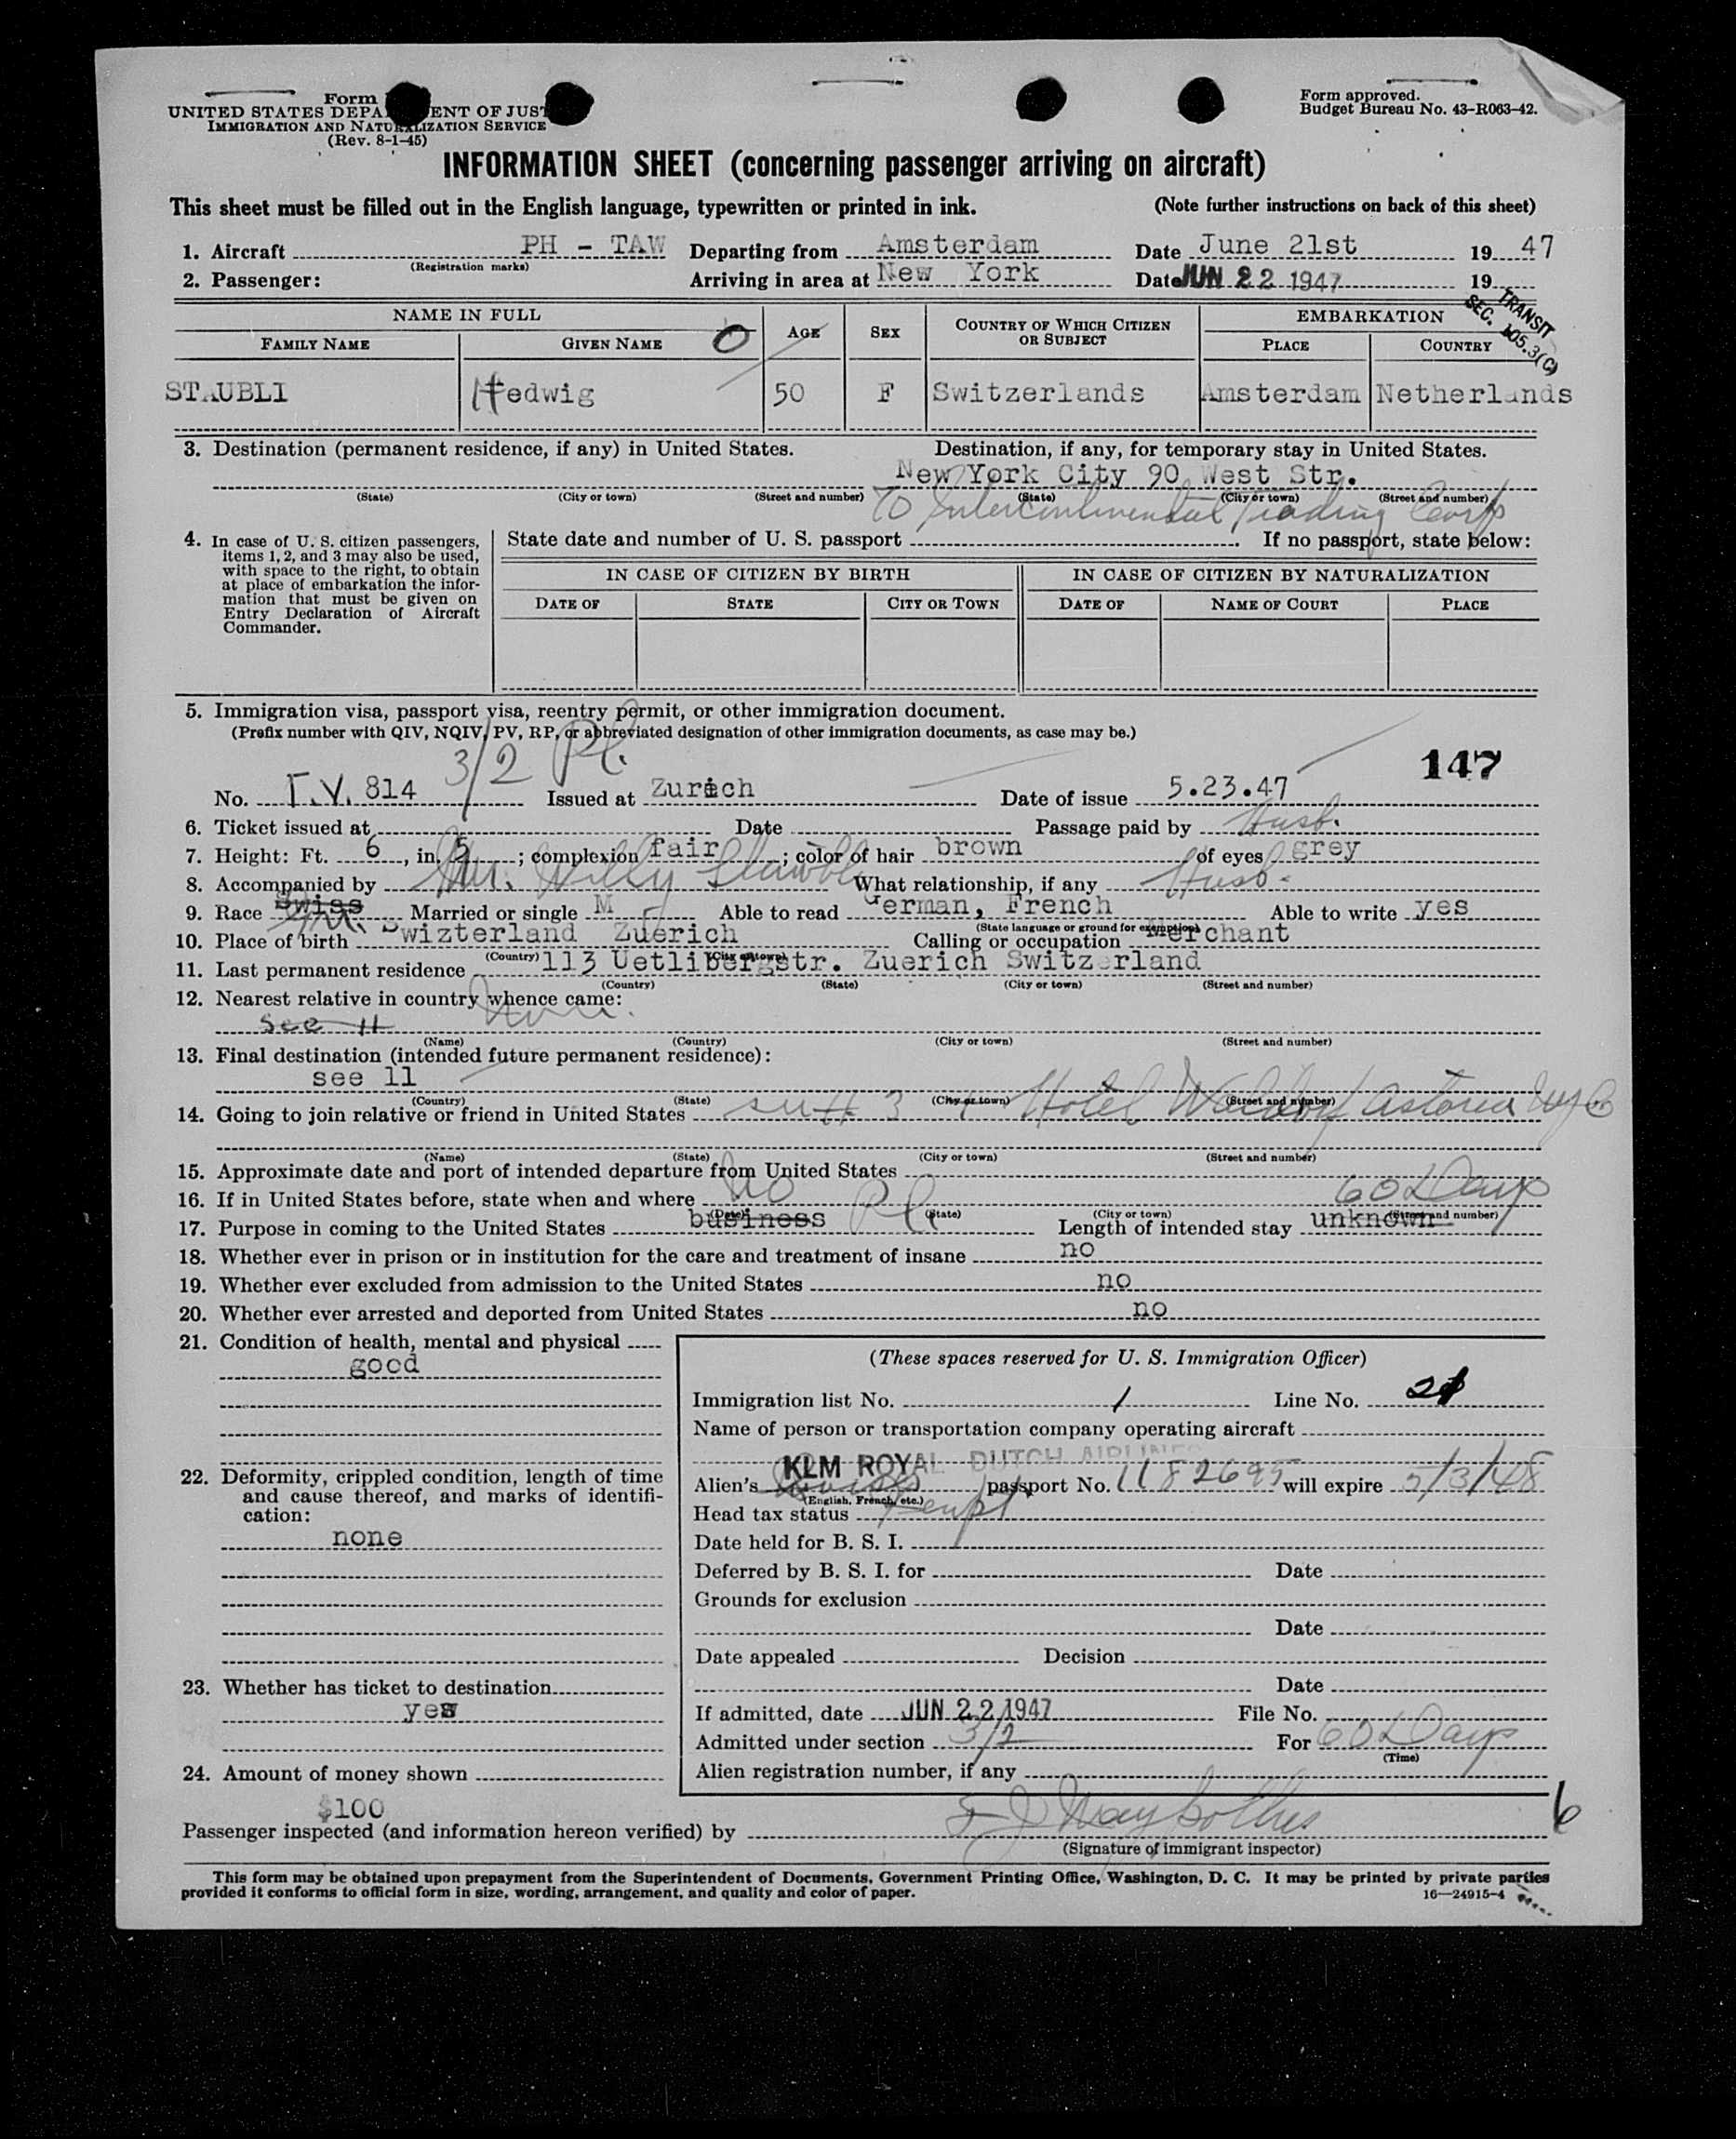 Form
UNITED STATES DEPA ENT OF JUST
IMMIGRATION AND NATURALIZATION SERVICE
(Rev. 8-1-45)
Form approved.
Budget Bureau No. 43-R063-42.
INFORMATION SHEET (concerning passenger arriving on aircraft)
This sheet must be filled out in the English language, typewritten or printed in ink. (Note further instructions on back of this sheet)
1. Aircraft PH - TAW Departing from Amsterdam Date June 21st 19 47
(Registration marks)
2. Passenger: Arriving in area at New York Date JUN 22 1947 19
TRANSIT
SEC. 105.3(C)
NAME IN FULL AGE SEX COUNTRY OF WHICH CITIZEN OR SUBJECT EMBARKATION
FAMILY NAME GIVEN NAME PLACE COUNTRY
STAUBLI Hedwig 50 F Switzerlands Amsterdam Netherlands
3. Destination (permanent residence, if any) in United States. Destination, if any, for temporary stay in United States.
New York City 90 West Str.
(State) (City or town) (Street and number) (State) (City or town) (Street and number)
To Intercontinental Trading Corp
4. In case of U. S. citizen passengers, items 1, 2, and 3 may also be used, with space to the right, to obtain at place of embarkation the information that must be given on Entry Declaration of Aircraft Commander.
State date and number of U. S. passport . If no passport, state below:
IN CASE OF CITIZEN BY BIRTH IN CASE OF CITIZEN BY NATURALIZATION
DATE OF STATE CITY OR TOWN DATE OF NAME OF COURT PLACE
5. Immigration visa, passport visa, reentry permit, or other immigration document.
(Prefix number with QIV, NQIV, PV, RP, or abbreviated designation of other immigration documents, as case may be.)
3/2 Pl. 147
No. T.V. 814 Issued at Zurich Date of issue 5.23.47
6. Ticket issued at Date Passage paid by Husb.
7. Height: Ft. 6, in. 5; complexion fair; color of hair brown of eyes grey
8. Accompanied by Mr. Willy Staubli What relationship, if any Husb.
9. Race Swiss Married or single M Able to read German, French Able to write yes
(State language or ground for exemption)
10. Place of birth Swizterland Zuerich Calling or occupation Merchant
(Country) (City or town)
11. Last permanent residence 113 Uetlibergstr. Zuerich Switzerland
(Country) (State) (City or town) (Street and number)
12. Nearest relative in country whence came:
see 11 None.
(Name) (Country) (City or town) (Street and number)
13. Final destination (intended future permanent residence):
see 11
(Country) (State) (City or town) (Street and number)
14. Going to join relative or friend in United States 3 Hotel Waldorf Astoria NYC
(Name) (State) (City or town) (Street and number)
15. Approximate date and port of intended departure from United States
16. If in United States before, state when and where No 60 Days
(Date) (State) (City or town) (Street and number)
17. Purpose in coming to the United States business Pl. Length of intended stay unknown
18. Whether ever in prison or in institution for the care and treatment of insane no
19. Whether ever excluded from admission to the United States no
20. Whether ever arrested and deported from United States no
21. Condition of health, mental and physical
good
22. Deformity, crippled condition, length of time and cause thereof, and marks of identification:
none
23. Whether has ticket to destination
yes
24. Amount of money shown
$100
(These spaces reserved for U. S. Immigration Officer)
Immigration list No. 1 Line No.
Name of person or transportation company operating aircraft
KLM ROYAL DUTCH AIRLINES
Alien's Swiss passport No. 1182695 will expire 5/3/48
(English, French, etc.)
Head tax status
Date held for B. S. I.
Deferred by B. S. I. for Date
Grounds for exclusion
Date
Date appealed Decision
Date
If admitted, date JUN 22 1947 File No.
Admitted under section 3/2 For 60 Days
(Time)
Alien registration number, if any
6
Passenger inspected (and information hereon verified) by
(Signature of immigrant inspector)
This form may be obtained upon prepayment from the Superintendent of Documents, Government Printing Office, Washington, D. C. It may be printed by private parties
provided it conforms to official form in size, wording, arrangement, and quality and color of paper. 16—24915-4